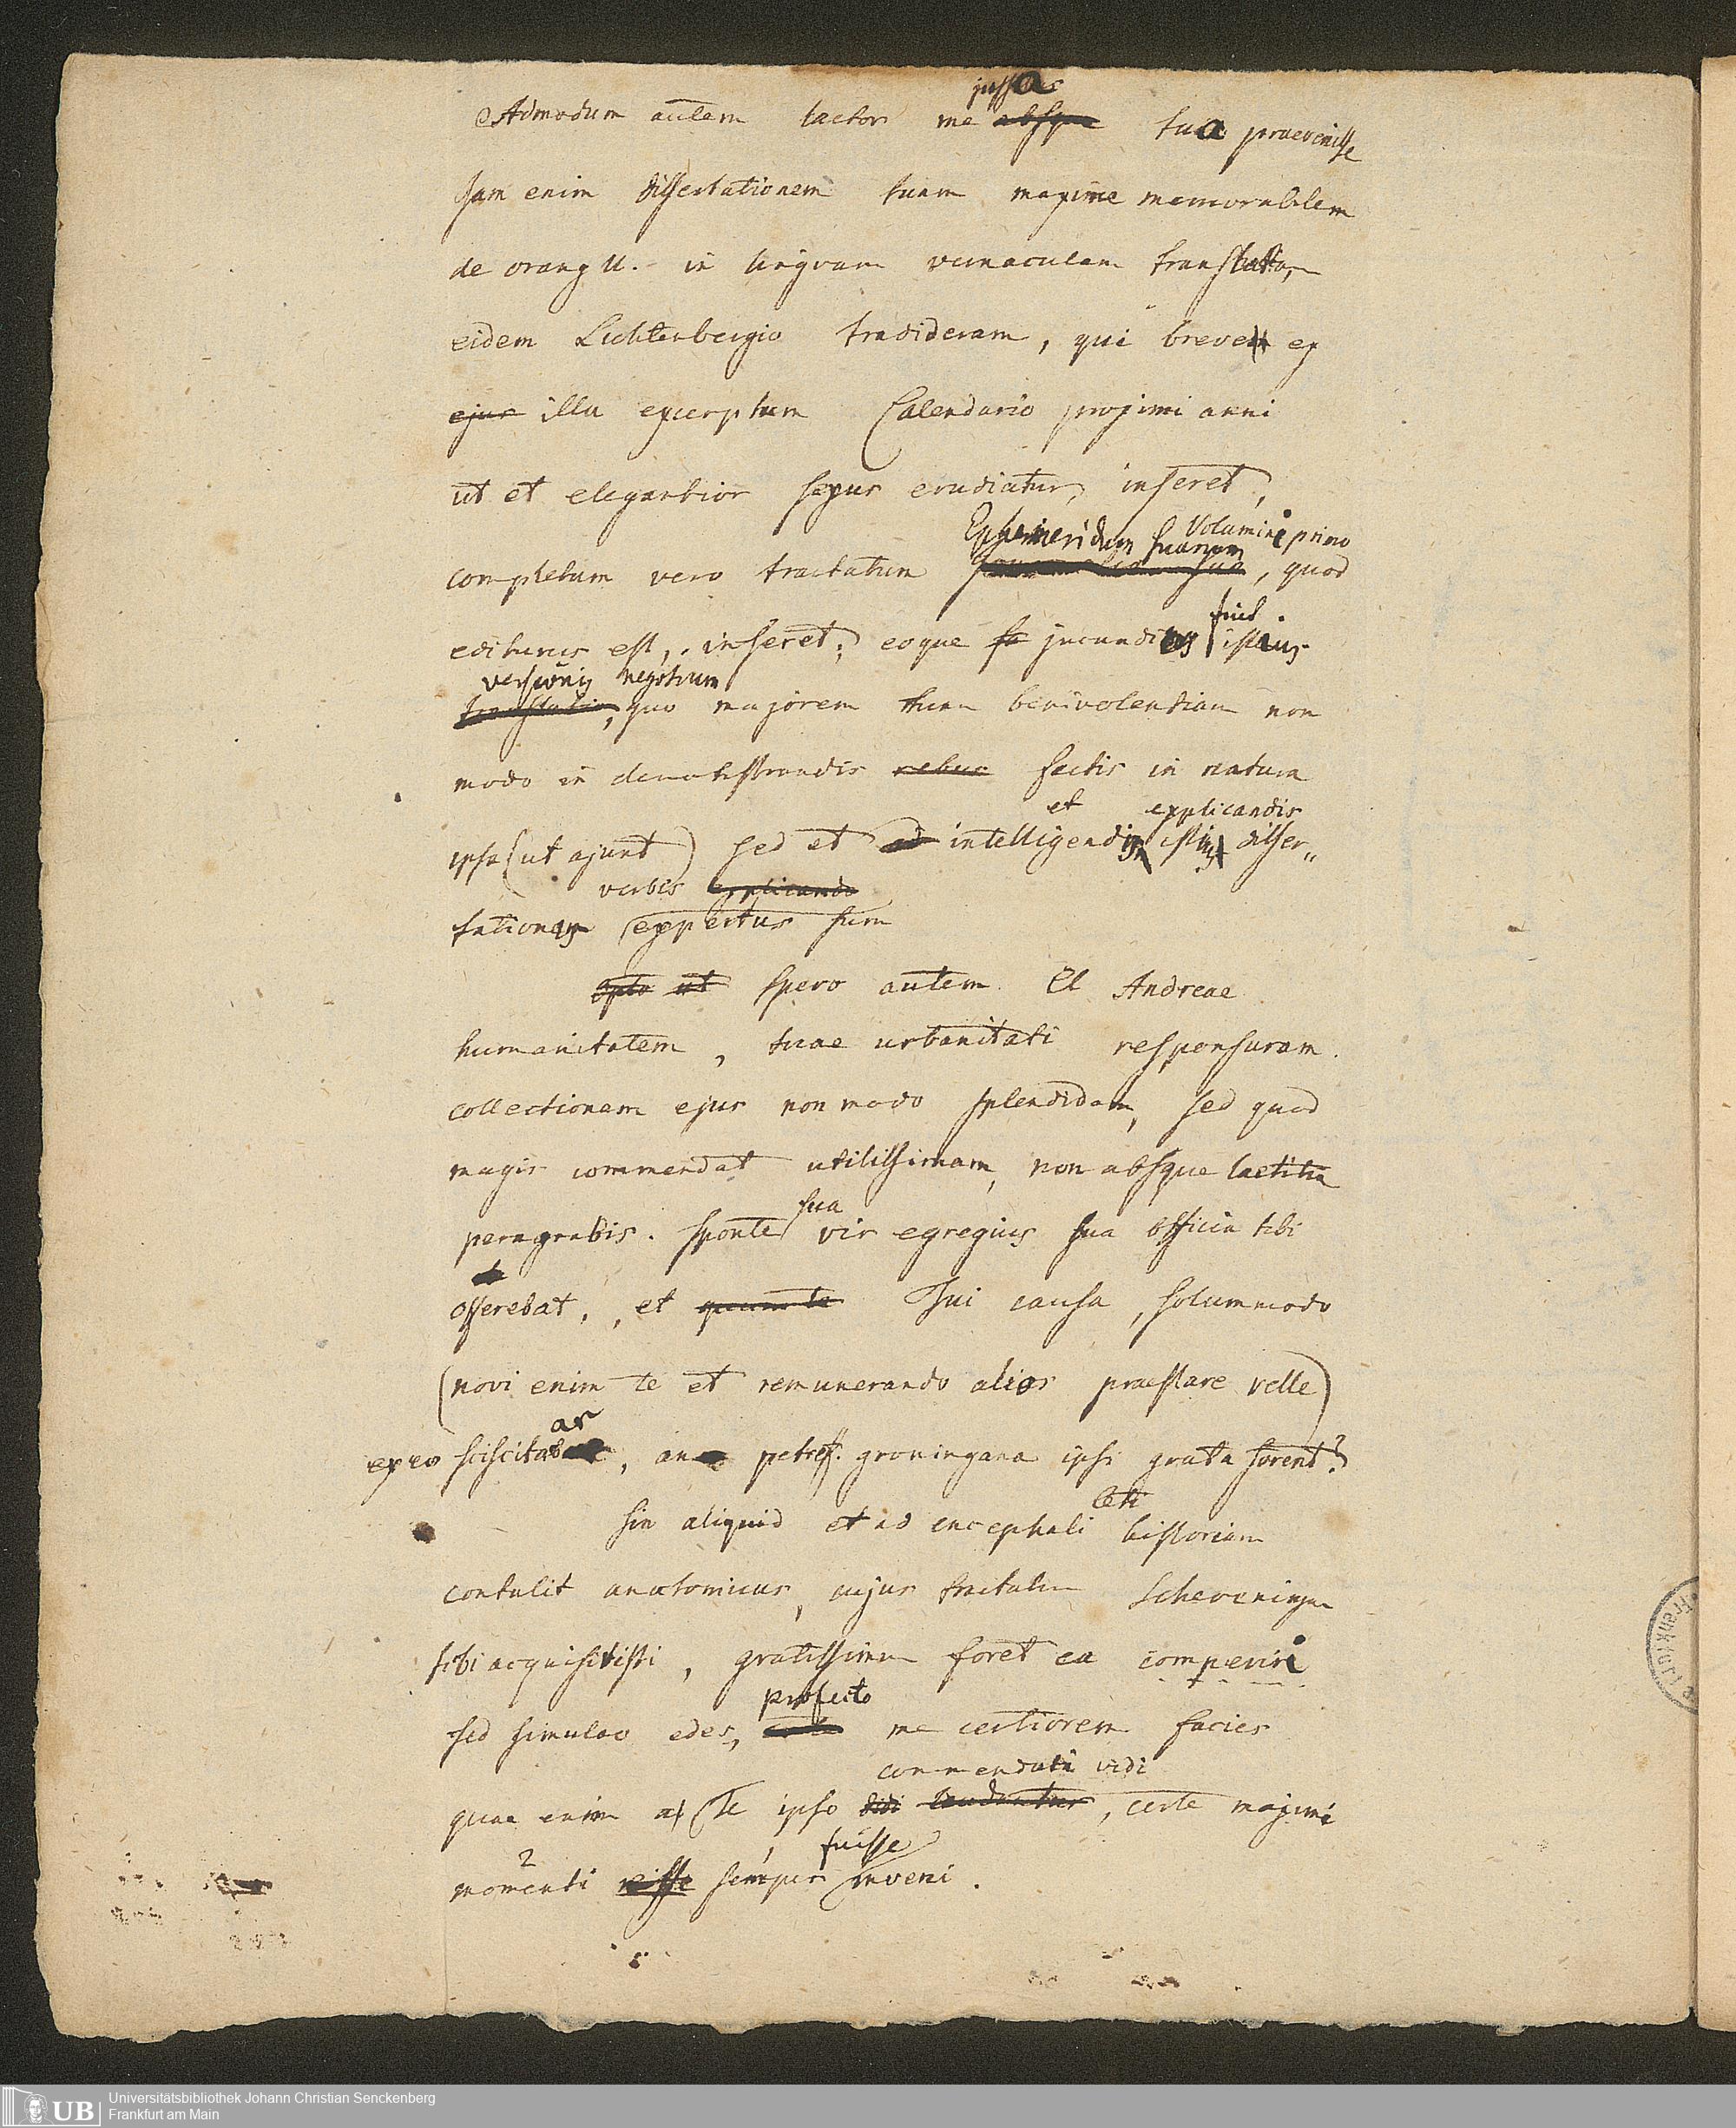 jussa
Admodum autem laetor me absque tua praevenisse
Jam enim dissertationem tuam maxime memorabilem
de orang U. in linguam vernaculam translatam
eidem Lichtenbergio tradideram, qui breve ex
ejus illa excerptum Calendario proximi anni
ut et elegantior sexus erudiatur, inseret,
Ephemeridum suarum Volumini primo
completum vero tractatum , quod
editurus est, inseret; eoque jucundius fuit istius
versionis negotium
quo majorem tuam benivolentiam non
modo in demonstrandis rebus factis in natura
et explicandis
ipsa (ut ajunt) sed et ad intelligendis istius disser„
verbis explicando
tationis expertus sum
opto ut spero autem Cl Andreae
humanitatem, tuae urbanitati responsuram.
collectionem ejus non modo splendidam, sed quod
magis commendat utilissimam, non absque laetitia
sua
peragrabis. Sponte vir egregius sua officia tibi
offerebat, et quum te Tui causa, solummodo
(novi enim te et remunerando alios praestare velle)
ar
ex eo sciscitab, an petref. groningana ipsi grata forent?
Ceti
sin aliquid et ad encephali historiam
contulit anatomicus, cujus tractatum Scheveningae
tibi acquisivisti, gratissimum foret ea comperiri
profecto
sed simulac edes, me certiorem facies
commendata vidi
quae enim a Te ipso laudantur, certe maximi
2 fuisse
momenti esse semper inveni.
UB Universitätsbibliothek Johann Christian Senckenberg
Frankfurt am Main